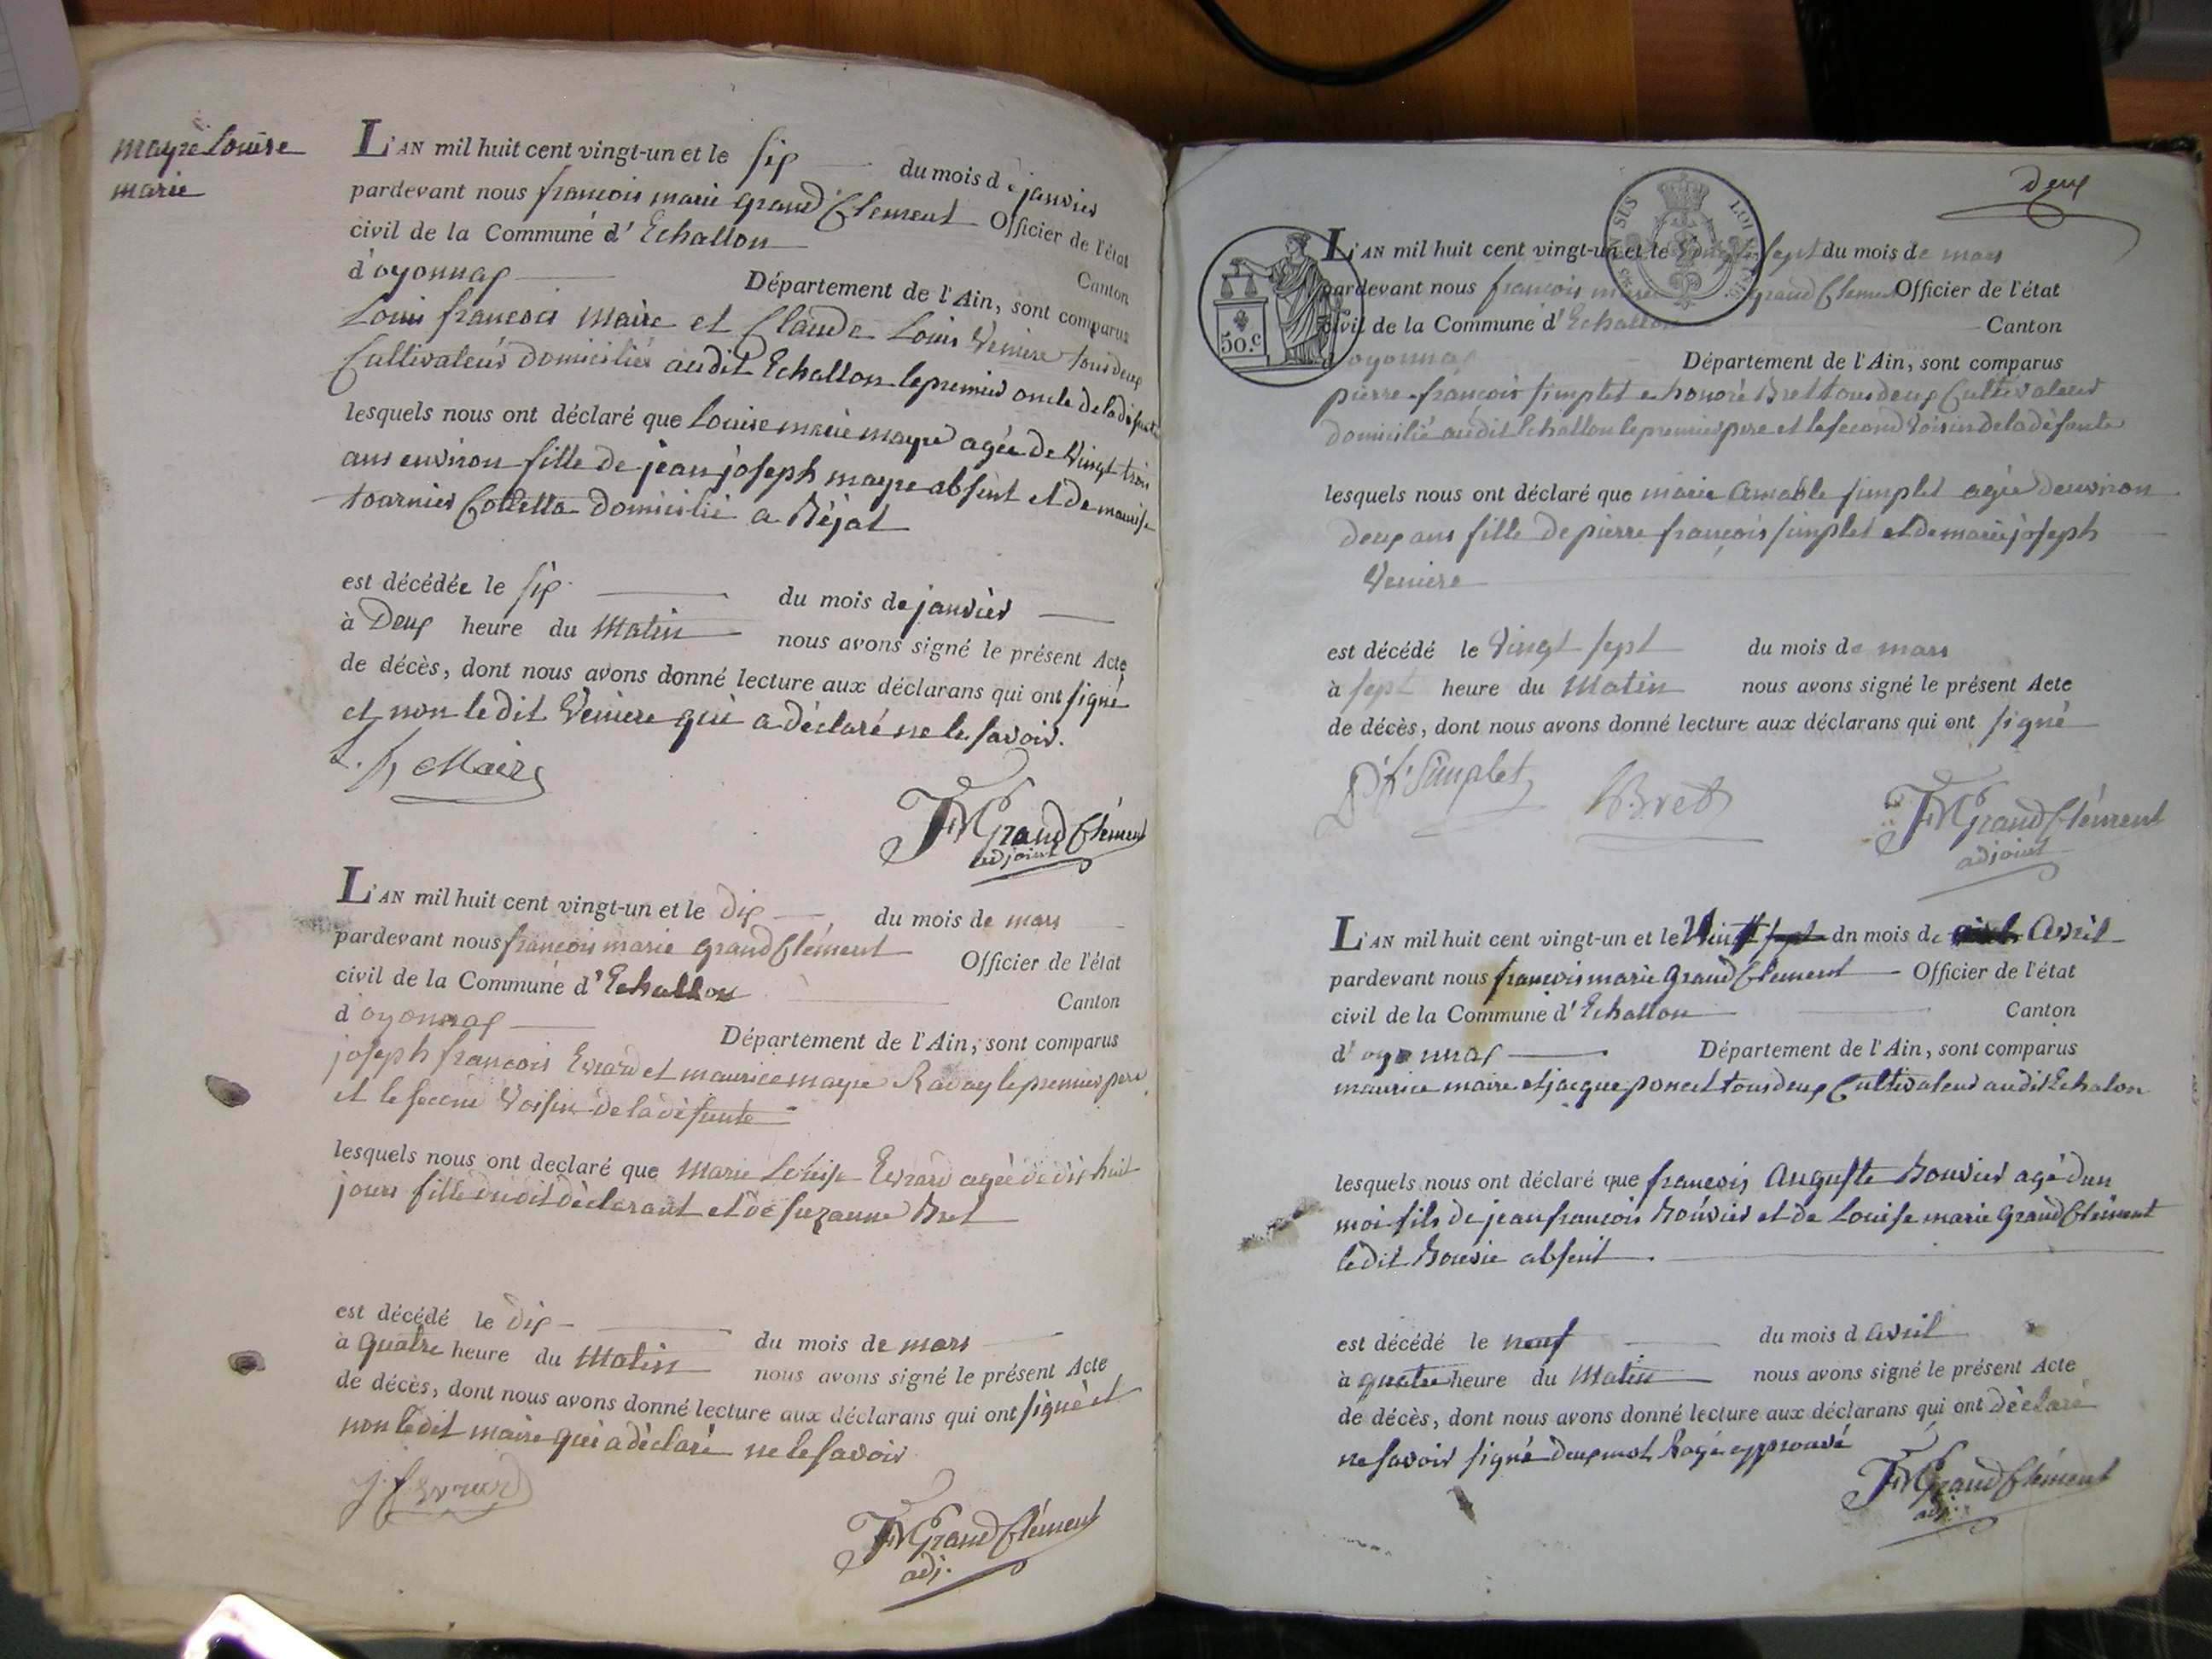 mayre Louise
marie
L'AN mil huit cent vingt-un et le six du mois de janvier
pardevant nous francois marie grand Clement Officier de l'état
civil de la Commune d'Echallon Canton
d'oyonnax Département de l'Ain, sont comparus
Louis francois Maire et Claude Louis Veniere tous deux
Cultivateurs domiciliés audit Echallon le premier oncle de la défunte
lesquels nous ont déclaré que Louise marie mayre agée de vingt trois
ans environ fille de jean joseph mayre absent et de
tournier Colletta domicilié a
est décédée le six du mois de janvier
à Deux heure du Matin nous avons signé le présent Acte
de décès, dont nous avons donné lecture aux déclarans qui ont signé
et non le dit Veniere qui a déclaré ne le savoir.
L. f Maire
FM Grand Clément
adjoint
L'AN mil huit cent vingt-un et le dix du mois de mars
pardevant nous francois marie grand Clément Officier de l'état
civil de la Commune d'Echallon Canton
d'oyonnax Département de l'Ain, sont comparus
joseph francois Evrard et maurice mayre Ravoy le premier pere
et le second Voisin de la défunte
lesquels nous ont declaré que Marie Louise Evrard agée de dix huit
jours fille du dit déclarant et de suzanne Bret
est décédé le dix du mois de mars
à quatre heure du Matin nous avons signé le présent Acte
de décès, dont nous avons donné lecture aux déclarans qui ont signé et
non le dit maire qui a déclaré ne le savoir
j. f Evrard
FM Grand Clément
adj.
deux
50.c
L'AN mil huit cent vingt-un et le vingt sept du mois de mars
pardevant nous francois marie grand Clement Officier de l'état
civil de la Commune d'Echallon Canton
d'oyonnax Département de l'Ain, sont comparus
pierre francois simplet et honoré Bret tous deux Cultivateurs
domicilié audit Echallon le premier pere et le second voisin de la défunte
lesquels nous ont déclaré que marie Amable simplet agée denviron
deux ans fille de pierre françois simplet et de marie joseph
Veniere
est décédé le Vingt sept du mois de mars
à sept heure du Matin nous avons signé le présent Acte
de décès, dont nous avons donné lecture aux déclarans qui ont signé
P f Simplet
h Bret
FM Grand Clément
adjoint
L'AN mil huit cent vingt-un et le sept dn mois de Avril
pardevant nous francois marie grand Clement Officier de l'état
civil de la Commune d'Echallon Canton
d'oyonnax Département de l'Ain, sont comparus
maurice maire et jacque poncet tous deux Cultivateurs audit Echalon
lesquels nous ont déclaré que francois Auguste Bouvier agé dun
moi fils de jean francois Bouvier et de Louise marie grand Clément
ledit Bouvie absent.
est décédé le neuf du mois d avril
à quatre heure du Matin nous avons signé le présent Acte
de décès, dont nous avons donné lecture aux déclarans qui ont déclaré
ne savoir signé deux mot Rayé approuvé
FM Grand Clément
adj.